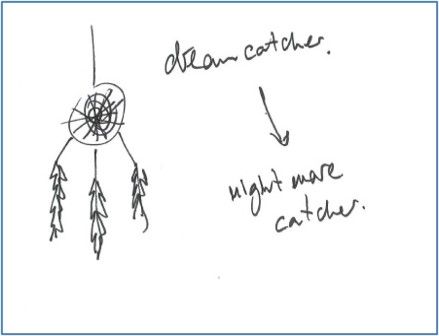 dreamcatcher.
nightmare
catcher.